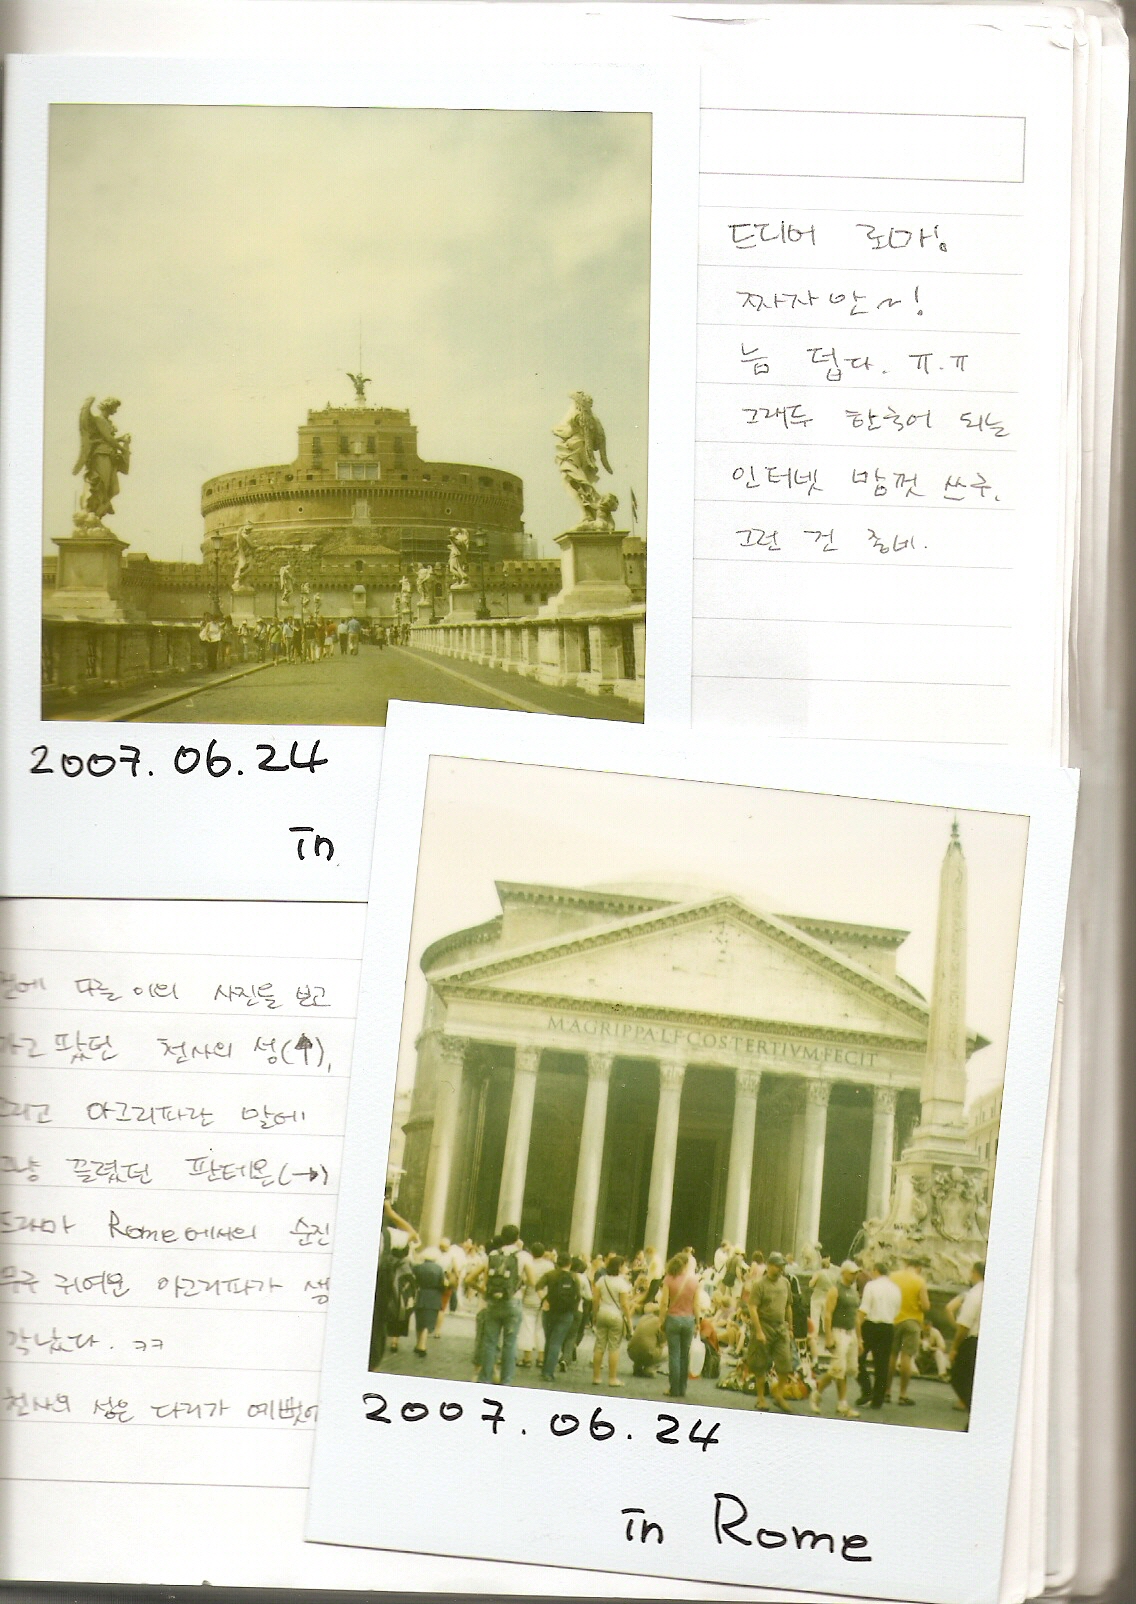 드디어 로마!
짜자안~!
늠 덥다. ㅠ.ㅠ
그래두 한국어 되는
인터넷 맘껏 쓰구.
그런 건 좋네.
2007.06.24
in
M·AGRIPPA·L·F·COS·TERTIVM·FECIT
2007.06.24
in Rome
전에 다른 이의 사진을 보고
가고 팠던 천사의 성(↑),
그리고 아그리파란 말에
그냥 끌렸던 판테온(→)
드라마 Rome에서의 순진
무구 귀여운 아그리파가 생
각났다. ㅋㅋ
천사의 성은 다리가 예뻤어